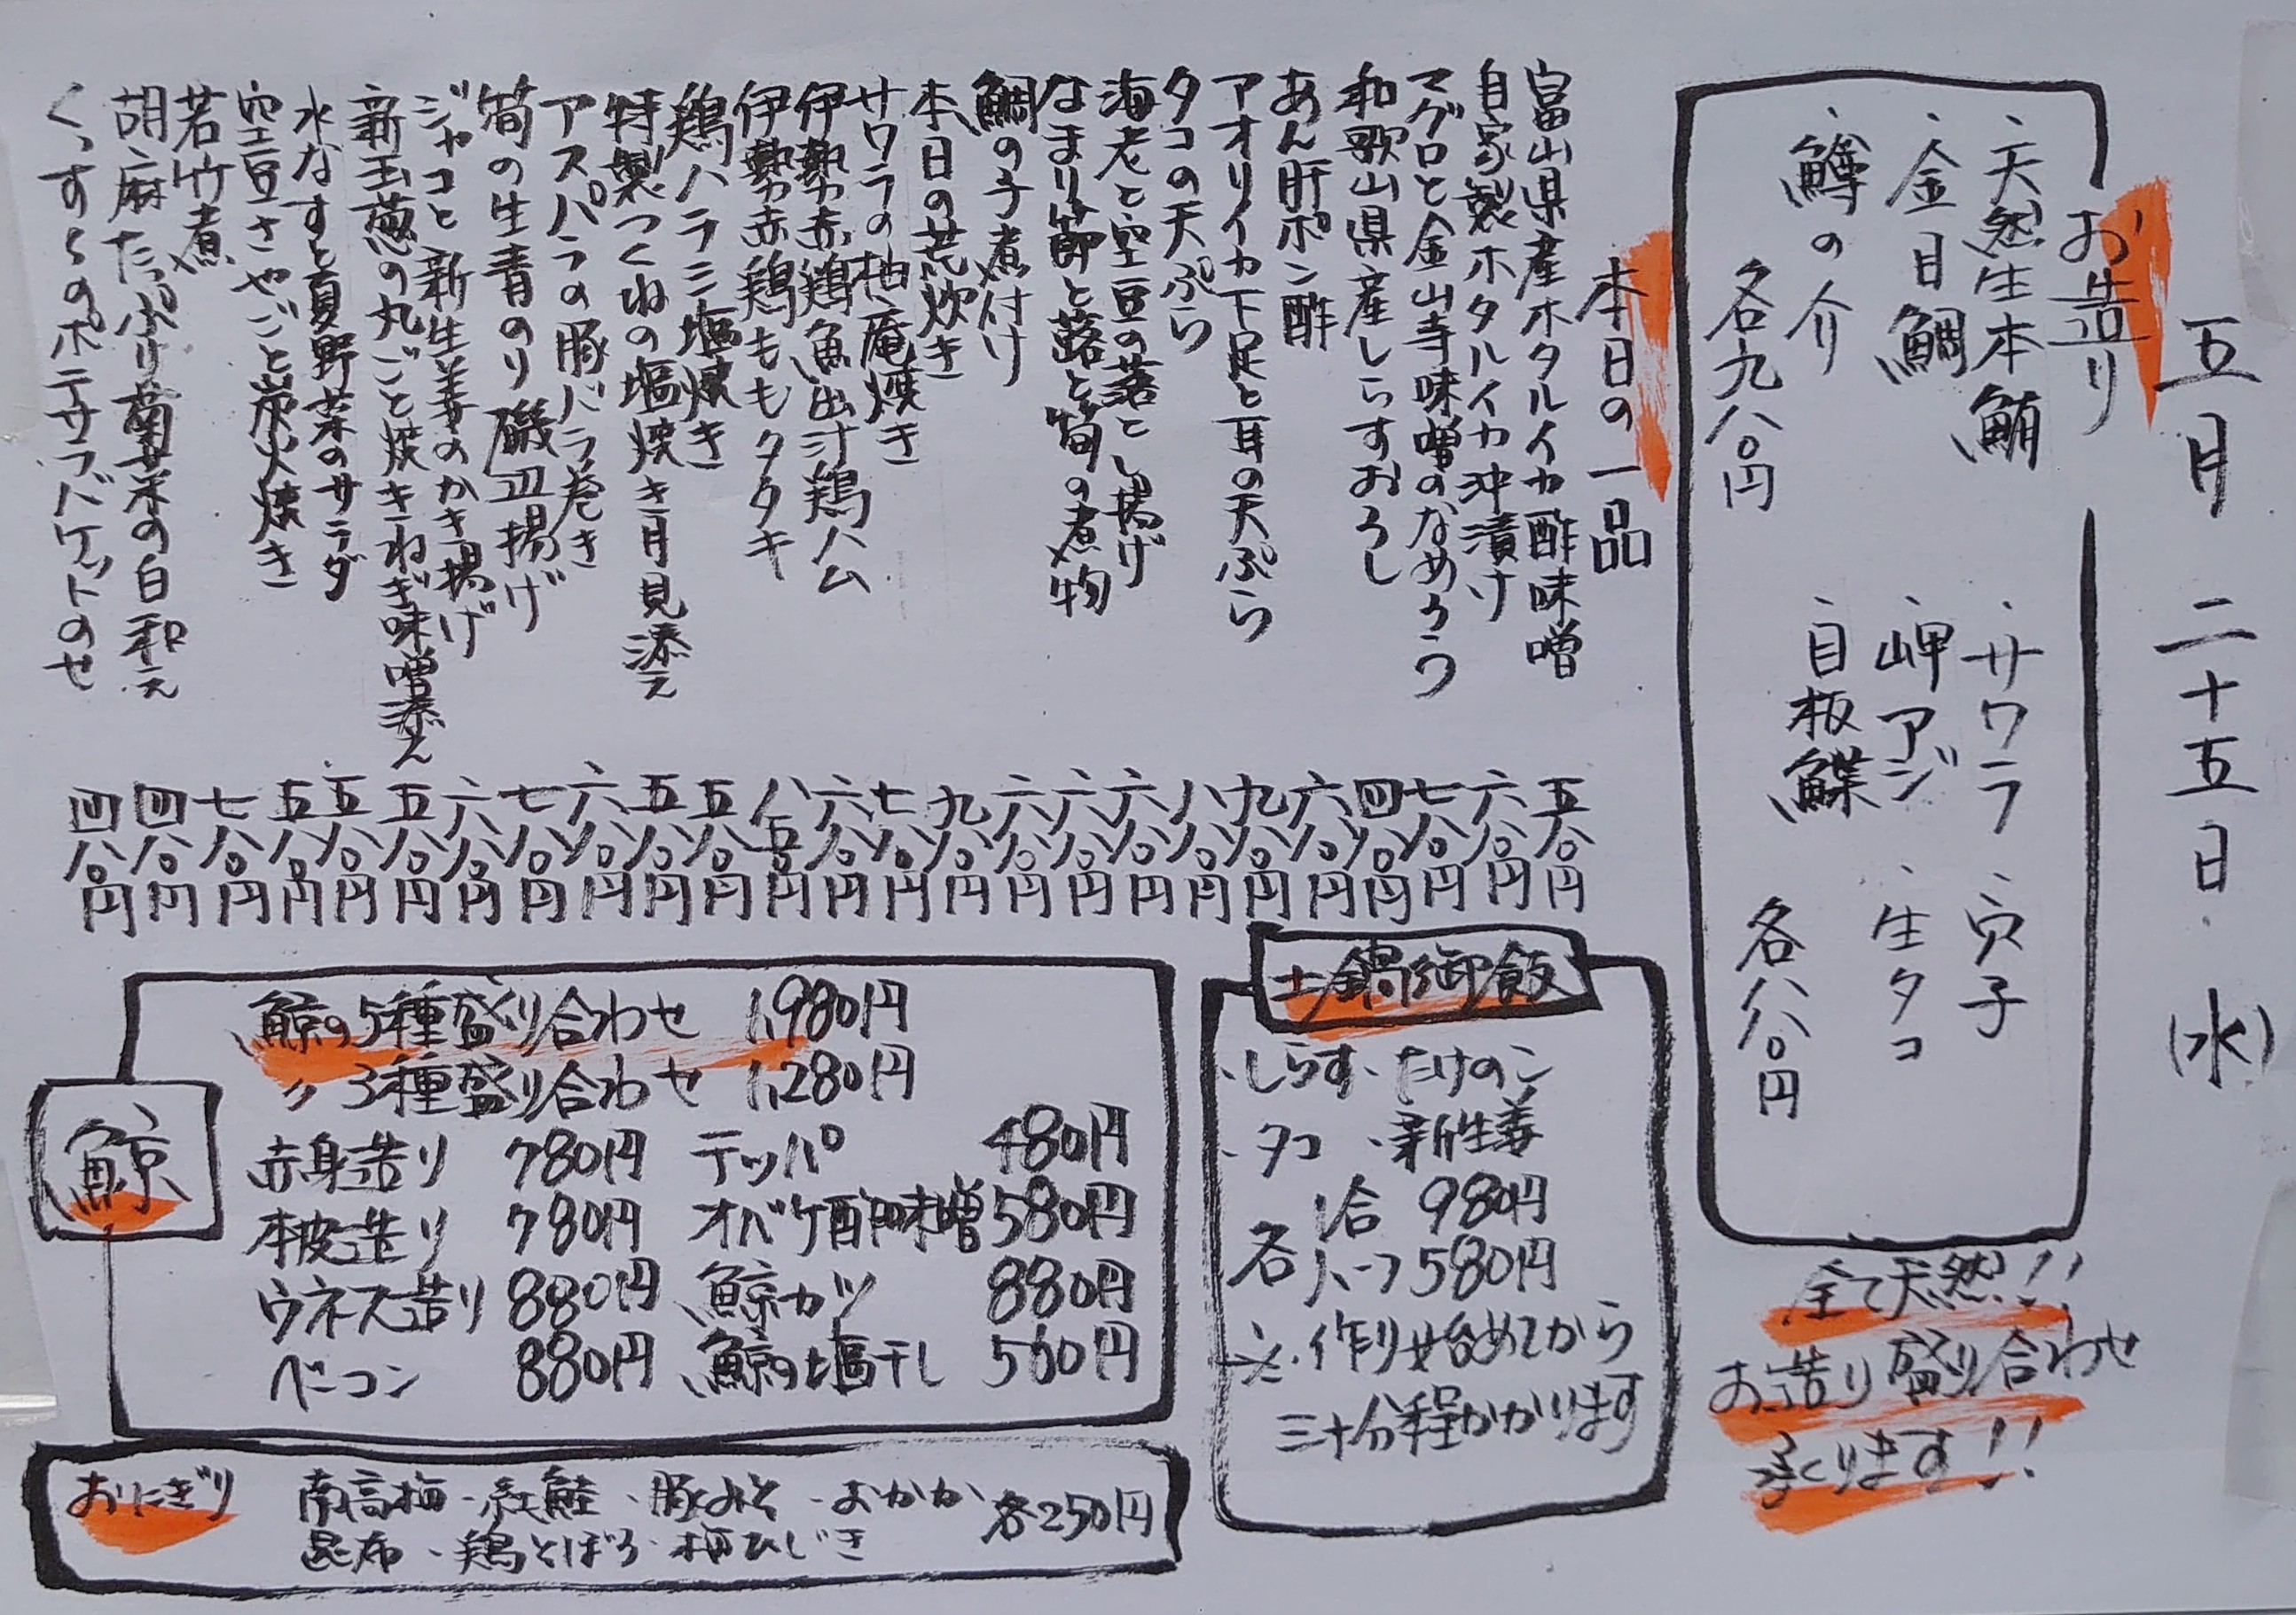 五月二十五日(水)
お造り
・天然生本鮪
・金目鯛
・鱒の介
各九八〇円
・サワラ ・穴子
・岬アジ ・生タコ
・目板鰈
各八八〇円
全て天然!!
お造り盛り合わせ
承ります!!
本日の一品
富山県産ホタルイカ酢味噌 五八〇円
自家製ホタルイカ沖漬け 六八〇円
マグロと金山寺味噌のなめろう 七八〇円
和歌山県産しらすおろし 四八〇円
あん肝ポン酢 六八〇円
アオリイカ下足と耳の天ぷら 九八〇円
タコの天ぷら 八八〇円
海老と空豆の落とし揚げ 六八〇円
なまり節と蕗と筍の煮物 六八〇円
鯛の子煮付け 六八〇円
本日の荒炊き 九八〇円
サワラの柚庵焼き 七八〇円
伊勢赤鶏魚出汁鶏ハム 六八〇円
伊勢赤鶏ももタタキ 八五〇円
鶏ハラミ塩焼き 五八〇円
特製つくねの塩焼き月見添え 五八〇円
アスパラの豚バラ巻き 六八〇円
筍の生青のり磯辺揚げ 七八〇円
ジャコと新生姜のかき揚げ 六八〇円
新玉葱の丸ごと焼きねぎ味噌添え 五八〇円
水なすと夏野菜のサラダ 五八〇円
空豆さやごと炭火焼き 五八〇円
若竹煮 七八〇円
胡麻たっぷり菊菜の白和え 四八〇円
くっすらのポテサラバケットのせ 四八〇円
土鍋御飯
・しらす ・たけのこ
・タコ ・新生姜
各 1合 980円
ハーフ 580円
※作り始めてから
三十分程かかります
鯨
鯨の5種盛り合わせ 1,980円
〃 3種盛り合わせ 1,280円
赤身造り 780円 テッパ 480円
本皮造り 780円 オバケ酢味噌 580円
ウネス造り 880円 鯨カツ 880円
ベーコン 880円 鯨の塩干し 560円
おにぎり 南高梅・紅鮭・豚みそ・おかか
昆布・鶏そぼろ・梅ひじき 各250円